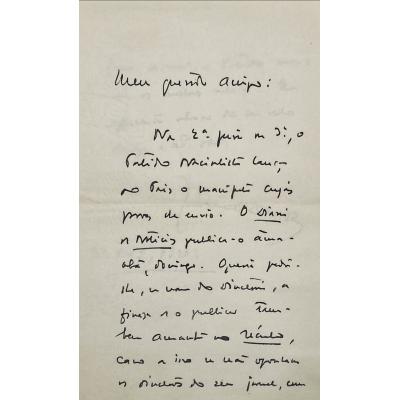 Meu querido amigo:
Na 2ª feira ou 3ª, o
Partido Socialista lança
no País o manifesto cujas
provas lhe envio. O Diário
de Notícias publica-o ama-
nhã, domingo. Queria pedir-
lhe, em nome do Directório, a
fineza de o publicar tam-
bém amanhã no Século,
caso a isso se não oponham
os directores do seu jornal, com